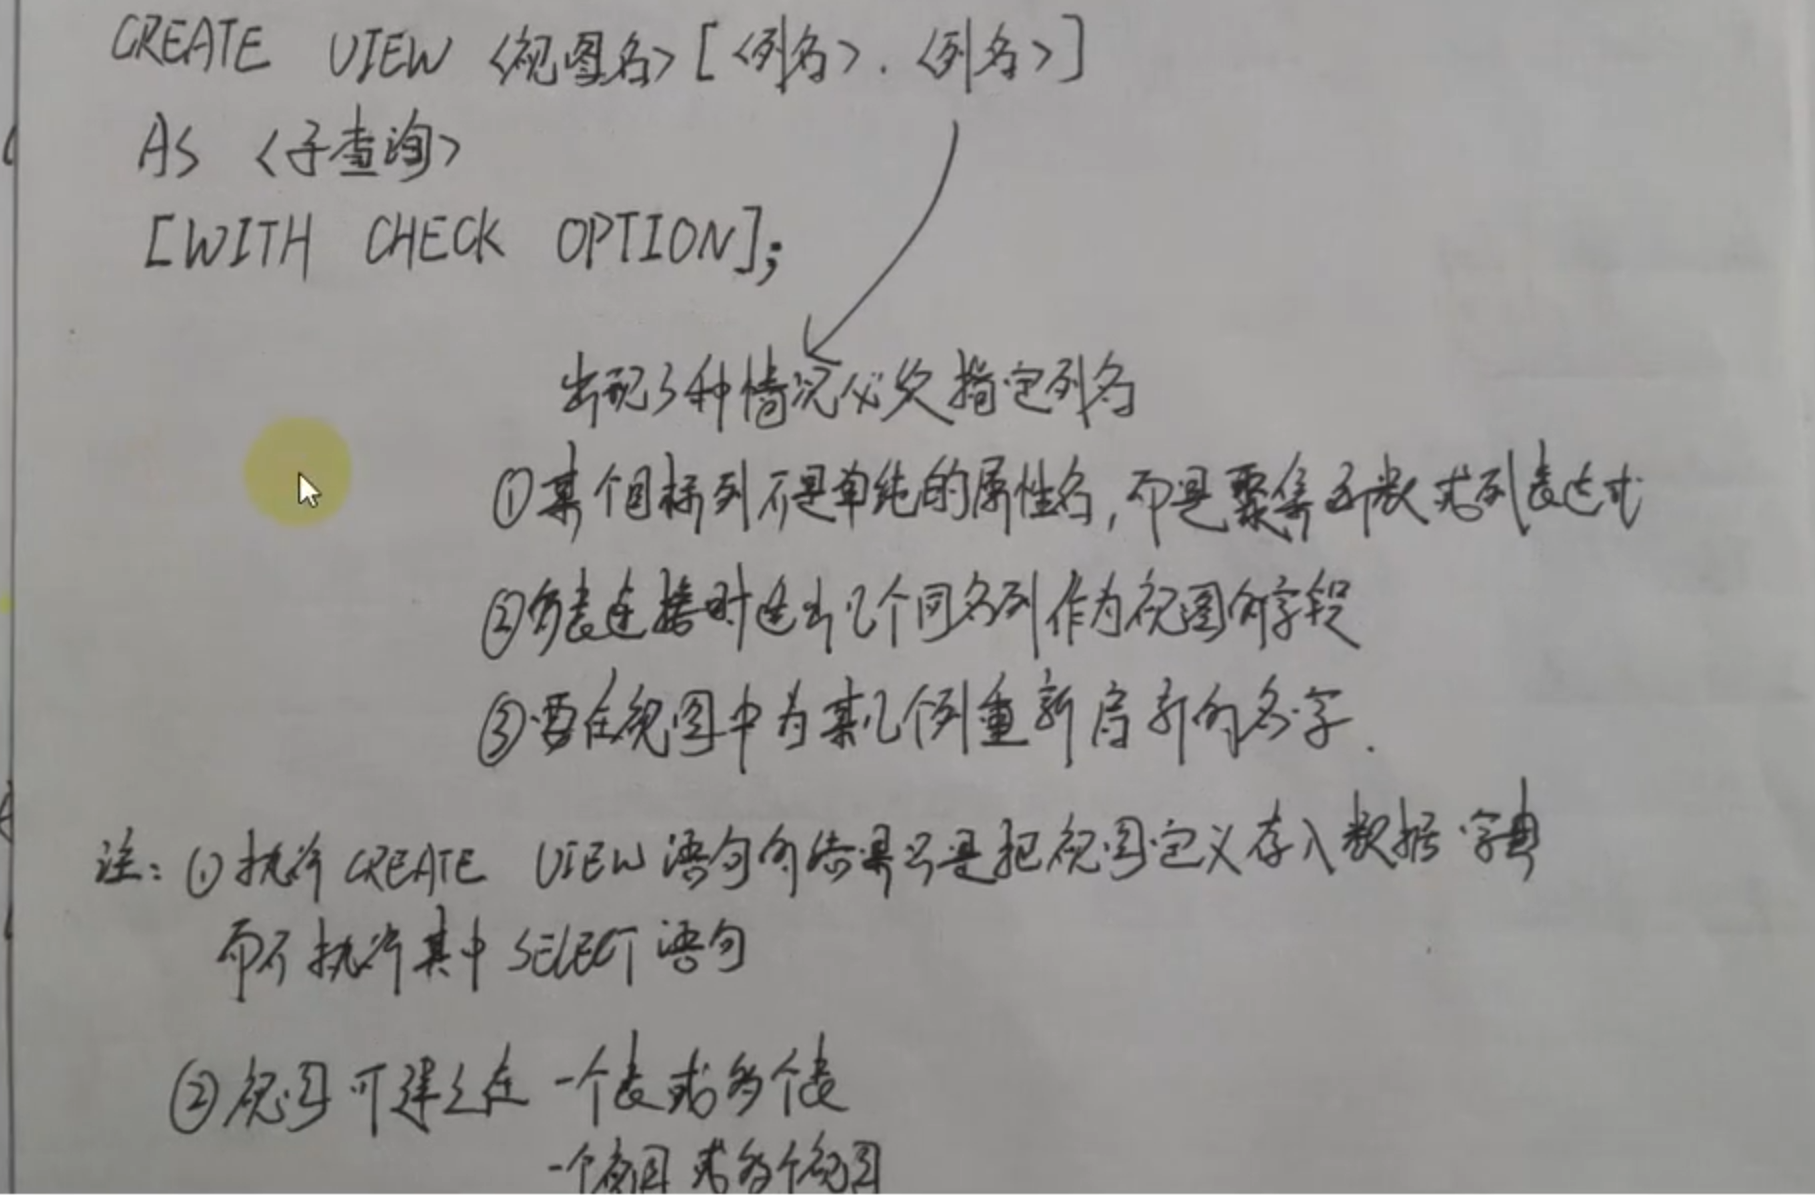 CREATE VIEW <视图名> [<列名>. <列名>]
AS <子查询>
[WITH CHECK OPTION];
出现3种情况必须指定列名
①某个目标列不是单纯的属性名,而是聚集函数或列表达式
②多表连接时选出几个同名列作为视图的字段
③需在视图中为某几个列重新启新的名字.
注: ①执行CREATE VIEW语句的结果只是把视图定义存入数据字典
而不执行其中SELECT语句
②视图可建立在 一个表或多个表
一个视图或多个视图